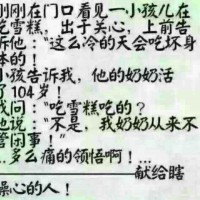 刚刚在门口看见一小孩儿在
吃雪糕，出于关心，上前告
诉他：“这么冷的天会吃坏身
体的！
小孩告诉我，他的奶奶活
了104岁！
我问：“吃雪糕吃的？
他说：“不是，我奶奶从来不
管闲事！”
...多么痛的领悟啊！...
——————献给瞎
操心的人！